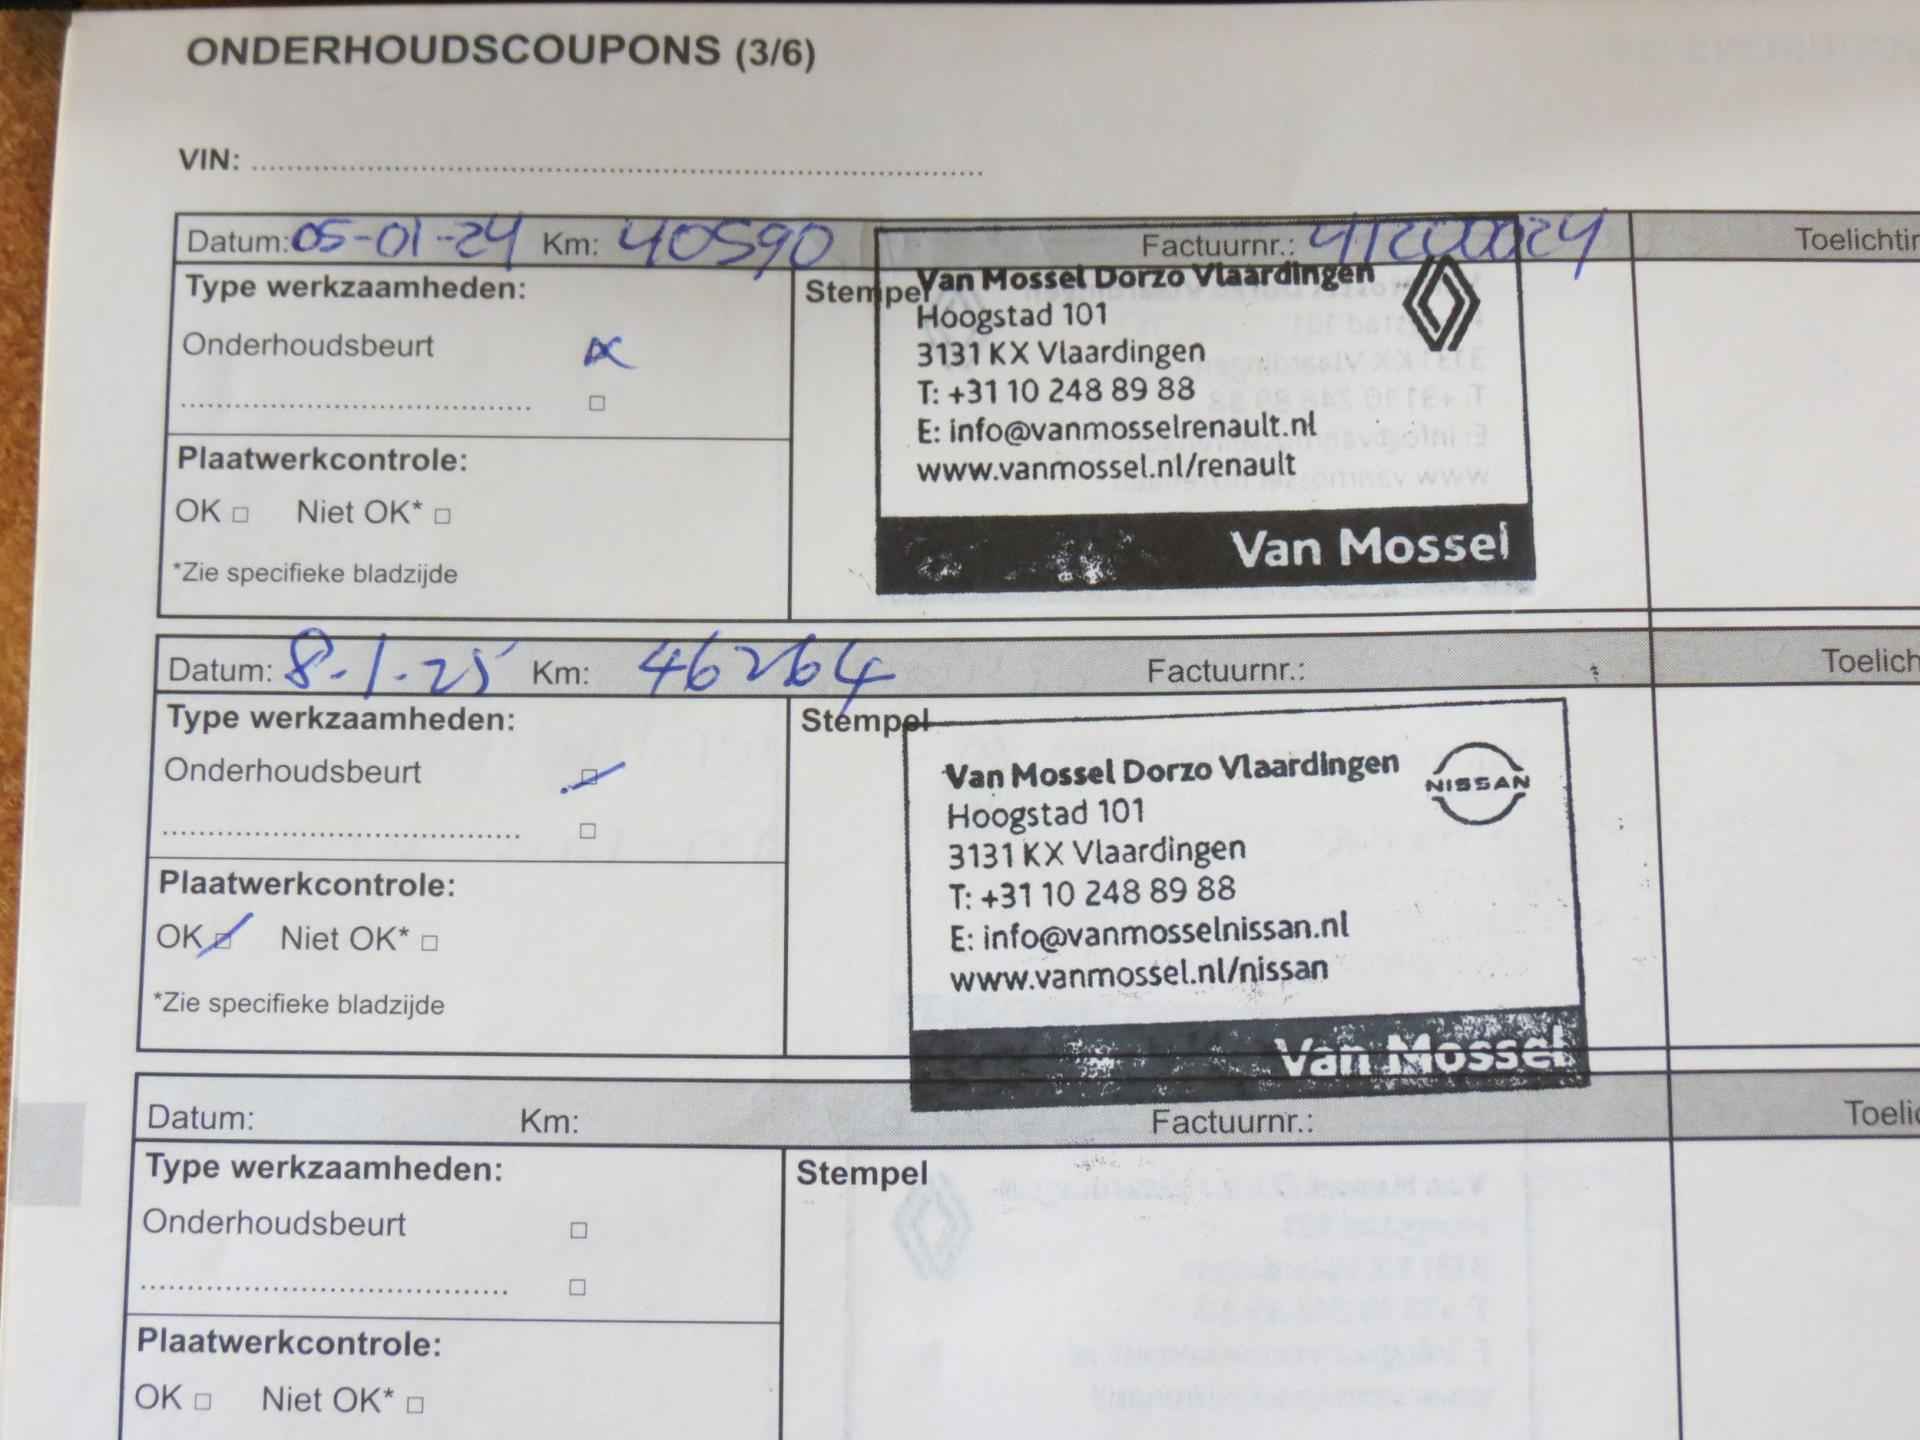 ONDERHOUDSCOUPONS (3/6)
VIN:
Datum: 05-01-24 Km: 40590 Factuurnr.: Toelichtin
Type werkzaamheden:
Onderhoudsbeurt
Plaatwerkcontrole:
OK □ Niet OK* □
*Zie specifieke bladzijde
Stempel
Van Mossel Dorzo Vlaardingen
Hoogstad 101
3131 KX Vlaardingen
T: +31 10 248 89 88
E: info@vanmosselrenault.nl
www.vanmossel.nl/renault
Van Mossel
Datum: 8-1-25 Km: 46264 Factuurnr.: Toelich
Type werkzaamheden:
Onderhoudsbeurt
Plaatwerkcontrole:
OK Niet OK* □
*Zie specifieke bladzijde
Stempel
Van Mossel Dorzo Vlaardingen
NISSAN
Hoogstad 101
3131 KX Vlaardingen
T: +31 10 248 89 88
E: info@vanmosselnissan.nl
www.vanmossel.nl/nissan
Van Mossel
Datum: Km: Factuurnr.: Toelic
Type werkzaamheden:
Onderhoudsbeurt □
Plaatwerkcontrole:
OK □ Niet OK* □
Stempel